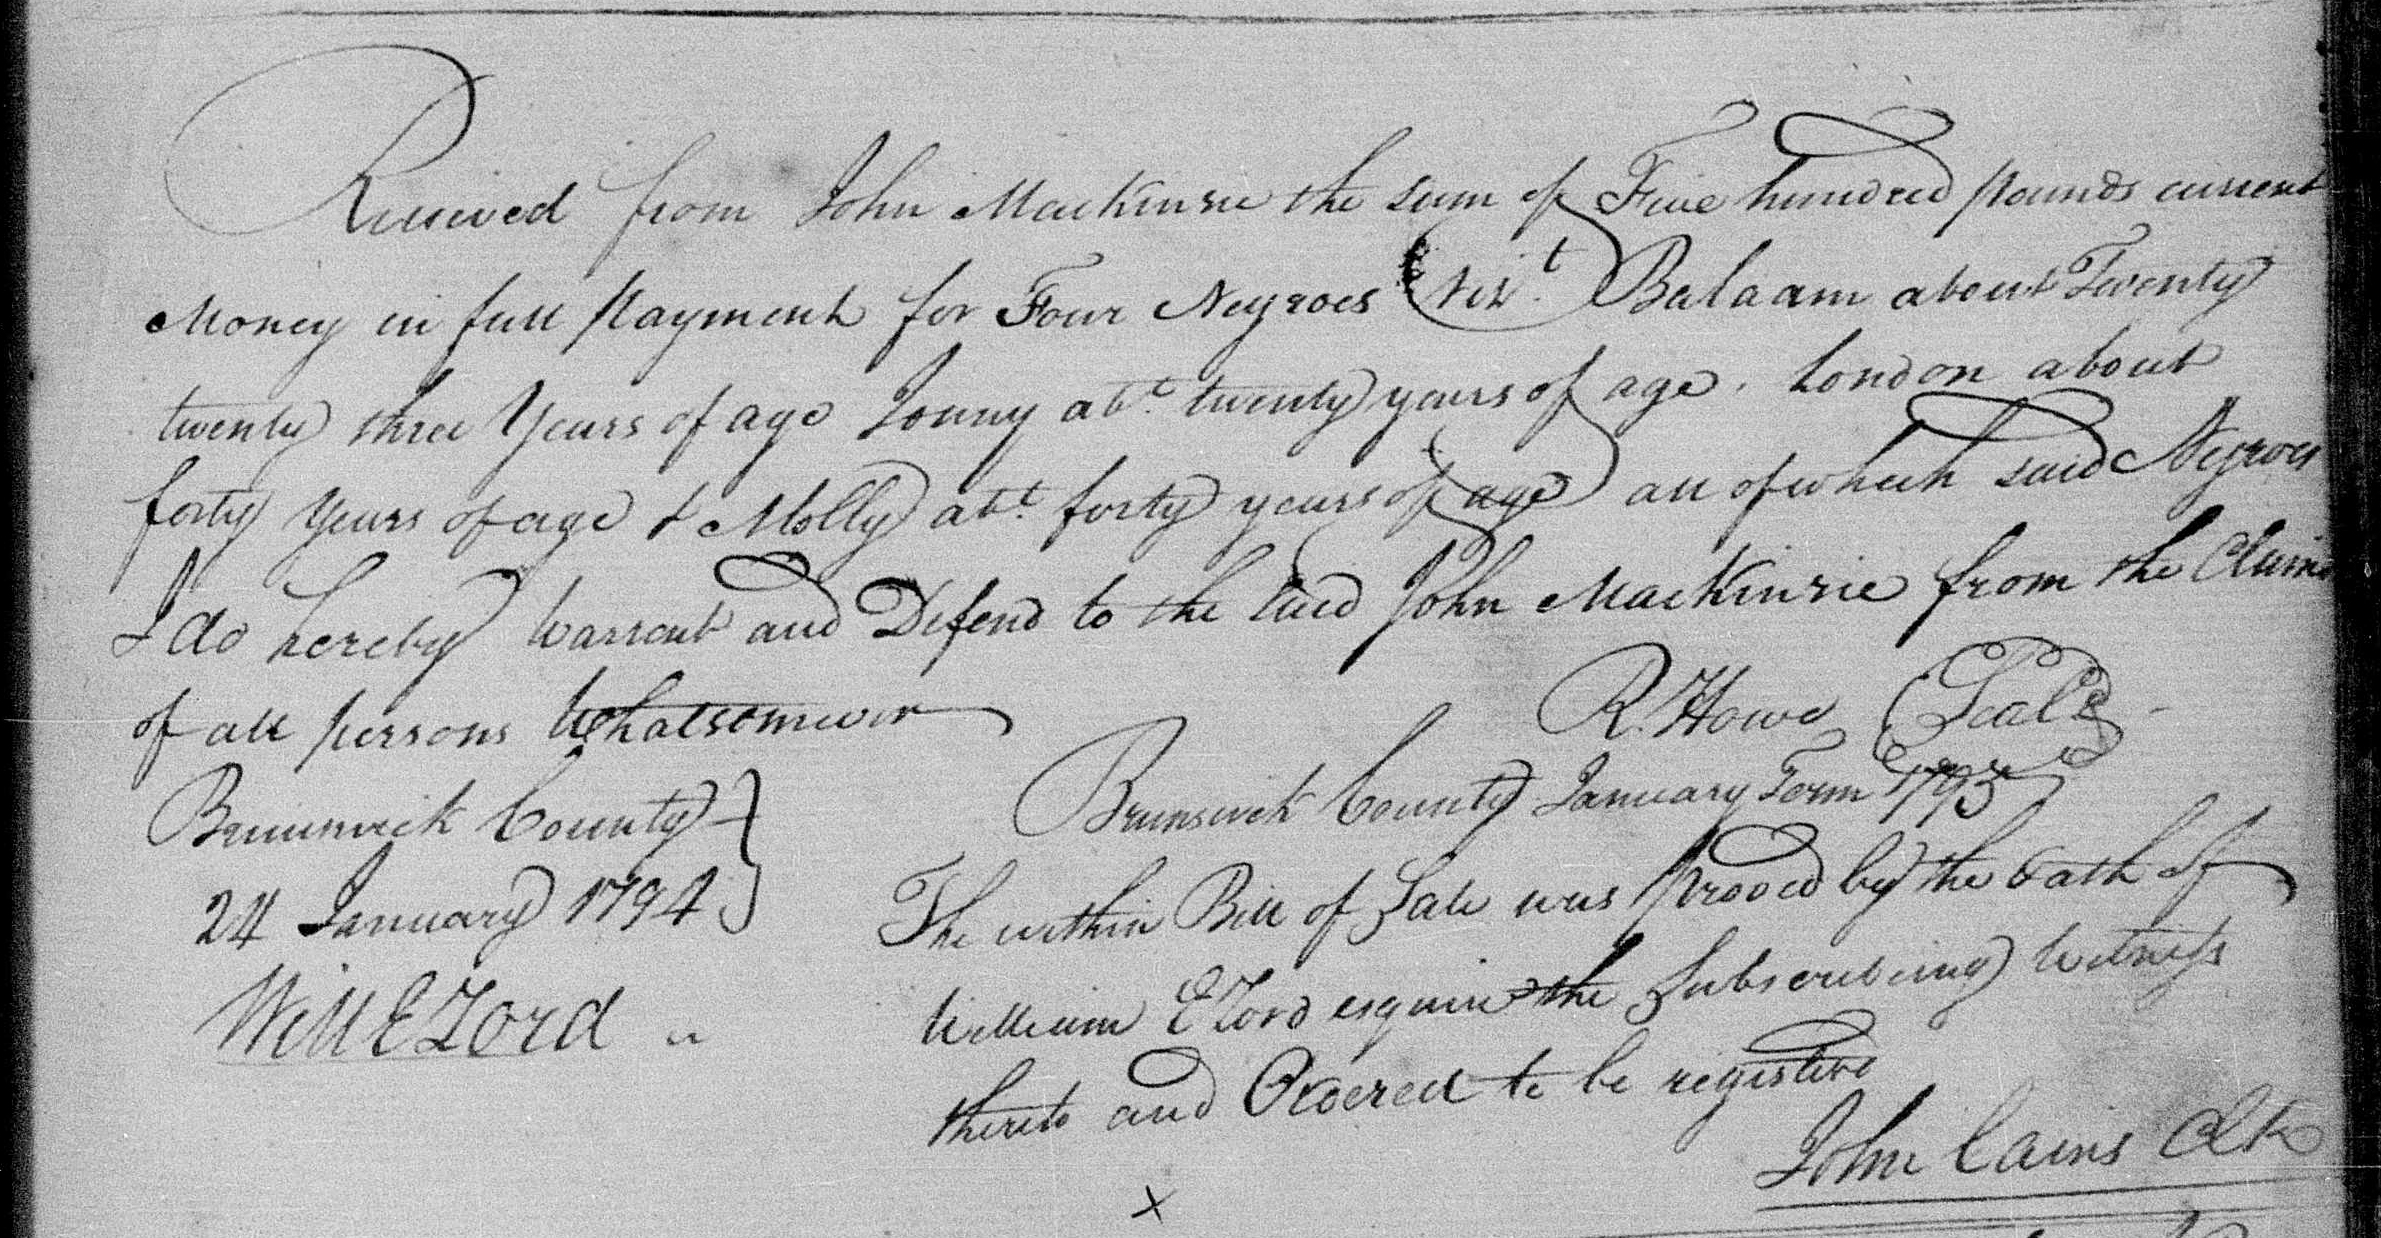 Received from John MacKinzie the sum of Five hundred pounds current
Money in full payment for Four Negroes Vizt. Balaam about Twenty
twenty three Years of age Jonny abt. twenty years of age. London about
forty Years of age & Molly abt. forty years of age all of which said Negroes
I do hereby Warrent and Defend to the said John MacKinzie from the Claims
of all persons Whatsomever
R. Howe Seal
Brunswick County
24 January 1794
Will E Lord
Brunswick County January Term 1795
The within Bill of Sale was prooved by the Oath of
William E Lord esquire the Subscribing Witness
thereto and Ordered to be registerd
John Cains Clk
x